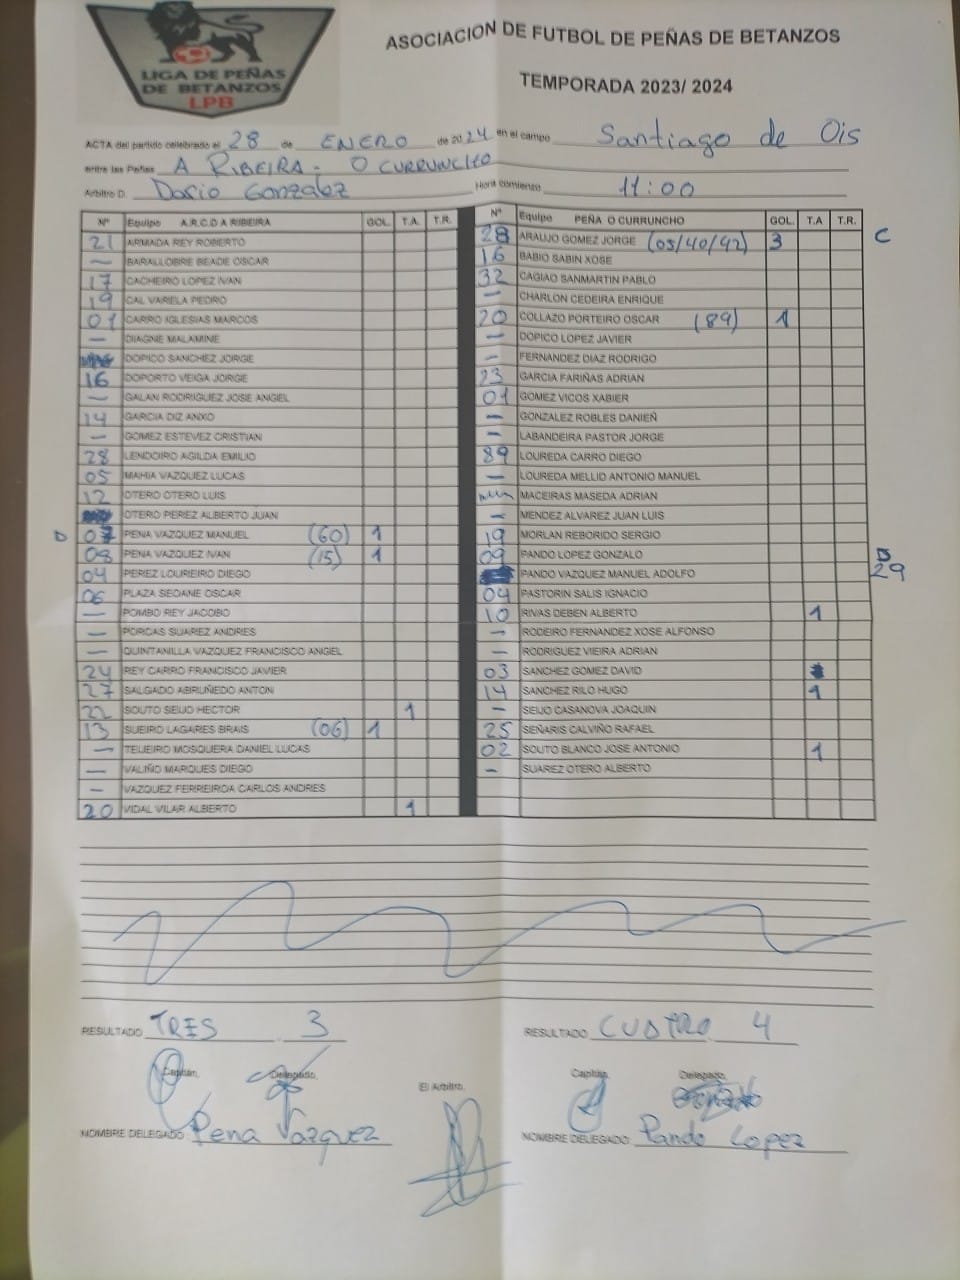 LIGA DE PEÑAS
DE BETANZOS
LPB
ASOCIACION DE FUTBOL DE PEÑAS DE BETANZOS
TEMPORADA 2023/ 2024
ACTA del partido celebrado el 28 de ENERO de 2024 en el campo Santiago de Ois
entre las Peñas A RIBEIRA - O CURRUNCHO
Arbitro D. Dario Gonzalez Hora comienzo 11:00
Nº Equipo A.R.C.D A RIBEIRA GOL. T.A. T.R.
21 ARMADA REY ROBERTO
— BARALLOBRE BEADE OSCAR
17 CACHEIRO LOPEZ IVAN
19 CAL VARELA PEDRO
01 CARRO IGLESIAS MARCOS
— DIAGNE MALAMINE
DOPICO SANCHEZ JORGE
16 DOPORTO VEIGA JORGE
— GALAN RODRIGUEZ JOSE ANGEL
14 GARCIA DIZ ANXO
— GOMEZ ESTEVEZ CRISTIAN
28 LENDOIRO AGILDA EMILIO
05 MAHIA VAZQUEZ LUCAS
12 OTERO OTERO LUIS
OTERO PEREZ ALBERTO JUAN
D 07 PENA VAZQUEZ MANUEL (60) 1
08 PENA VAZQUEZ IVAN (15) 1
04 PEREZ LOUREIRO DIEGO
06 PLAZA SEOANE OSCAR
— POMBO REY JACOBO
— PORCAS SUAREZ ANDRES
— QUINTANILLA VAZQUEZ FRANCISCO ANGEL
24 REY CARRO FRANCISCO JAVIER
27 SALGADO ABRUÑEDO ANTON
22 SOUTO SEIJO HECTOR 1
13 SUEIRO LAGARES BRAIS (06) 1
— TEIJEIRO MOSQUERA DANIEL LUCAS
— VALIÑO MARQUES DIEGO
— VAZQUEZ FERREIROA CARLOS ANDRES
20 VIDAL VILAR ALBERTO 1
Nº Equipo PEÑA O CURRUNCHO GOL. T.A T.R.
28 ARAUJO GOMEZ JORGE (05/40/42) 3 C
16 BABIO SABIN XOSE
32 CAGIAO SANMARTIN PABLO
— CHARLON CEDEIRA ENRIQUE
20 COLLAZO PORTEIRO OSCAR (89) 1
— DOPICO LOPEZ JAVIER
— FERNANDEZ DIAZ RODRIGO
23 GARCIA FARIÑAS ADRIAN
01 GOMEZ VICOS XABIER
— GONZALEZ ROBLES DANIEÑ
— LABANDEIRA PASTOR JORGE
89 LOUREDA CARRO DIEGO
— LOUREDA MELLID ANTONIO MANUEL
MACEIRAS MASEDA ADRIAN
— MENDEZ ALVAREZ JUAN LUIS
19 MORLAN REBORIDO SERGIO
09 PANDO LOPEZ GONZALO D
PANDO VAZQUEZ MANUEL ADOLFO 29
04 PASTORIN SALIS IGNACIO
10 RIVAS DEBEN ALBERTO 1
— RODEIRO FERNANDEZ XOSE ALFONSO
— RODRIGUEZ VIEIRA ADRIAN
03 SANCHEZ GOMEZ DAVID
14 SANCHEZ RILO HUGO 1
— SEIJO CASANOVA JOAQUIN
25 SEÑARIS CALVIÑO RAFAEL
02 SOUTO BLANCO JOSE ANTONIO 1
— SUAREZ OTERO ALBERTO
RESULTADO TRES 3
RESULTADO CUATRO 4
Capitán, Delegado,
El Arbitro,
Capitán, Delegado
NOMBRE DELEGADO Pena Vazquez
NOMBRE DELEGADO Pando Lopez